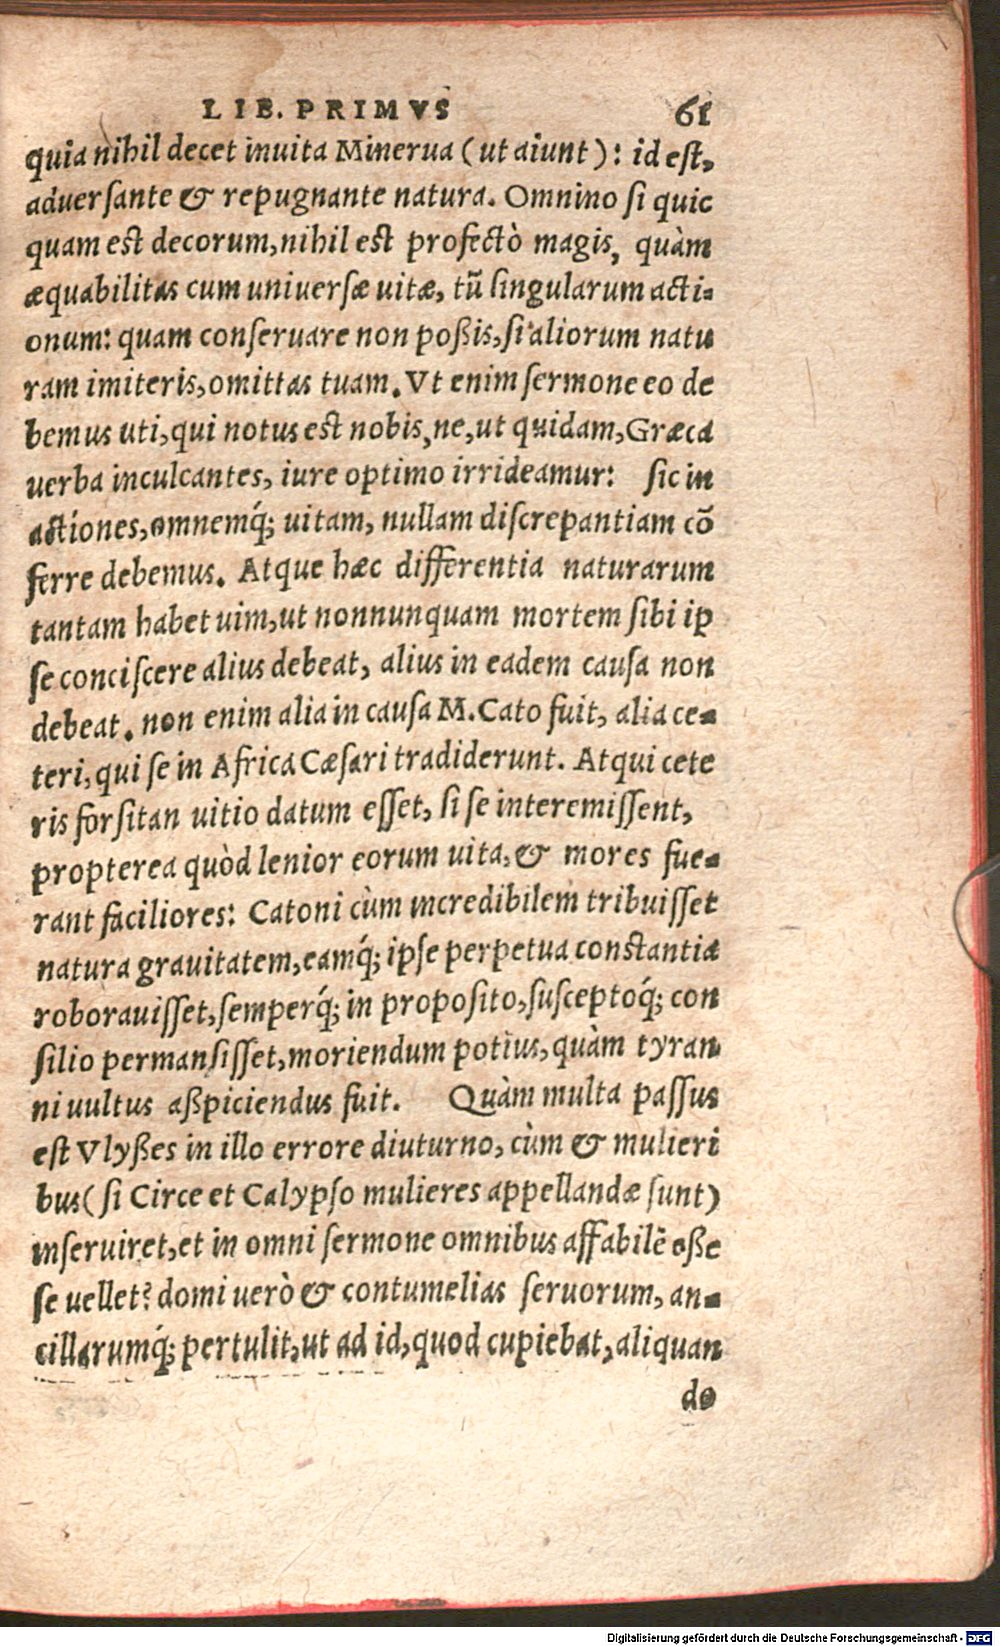 LIB. PRIMVS 61
quia nihil decet inuita Minerua (ut aiunt): id est,
aduersante & repugnante natura. Omnino si quic
quam est decorum, nihil est profectò magis, quàm
æquabilitas cum uniuersæ uitæ, tũ singularum acti-
onum: quam conseruare non poßis, si aliorum natu
ram imiteris, omittas tuam. Vt enim sermone eo de
bemus uti, qui notus est nobis, ne, ut quidam, Græca
uerba inculcantes, iure optimo irrideamur: sic in
actiones, omnemq́; uitam, nullam discrepantiam cõ
ferre debemus. Atque hæc differentia naturarum
tantam habet uim, ut nonnunquam mortem sibi ip
se consciscere alius debeat, alius in eadem causa non
debeat. non enim alia in causa M. Cato fuit, alia ce-
teri, qui se in Africa Cæsari tradiderunt. Atqui cete
ris forsitan uitio datum esset, si se interemissent,
propterea quòd lenior eorum uita, & mores fue-
rant faciliores: Catoni cùm incredibilem tribuisset
natura grauitatem, eamq́; ipse perpetua constantia
roborauisset, semperq́; in proposito, susceptoq́; con
silio permansisset, moriendum potius, quàm tyran
ni uultus aßpiciendus fuit. Quàm multa passus
est Vlyßes in illo errore diuturno, cùm & mulieri
bus (si Circe et Calypso mulieres appellandæ sunt)
inseruiret, et in omni sermone omnibus affabilẽ eße
se uellet? domi uerò & contumelias seruorum, an-
cillarumq́; pertulit, ut ad id, quod cupiebat, aliquan
do
Digitalisierung gefördert durch die Deutsche Forschungsgemeinschaft - DFG